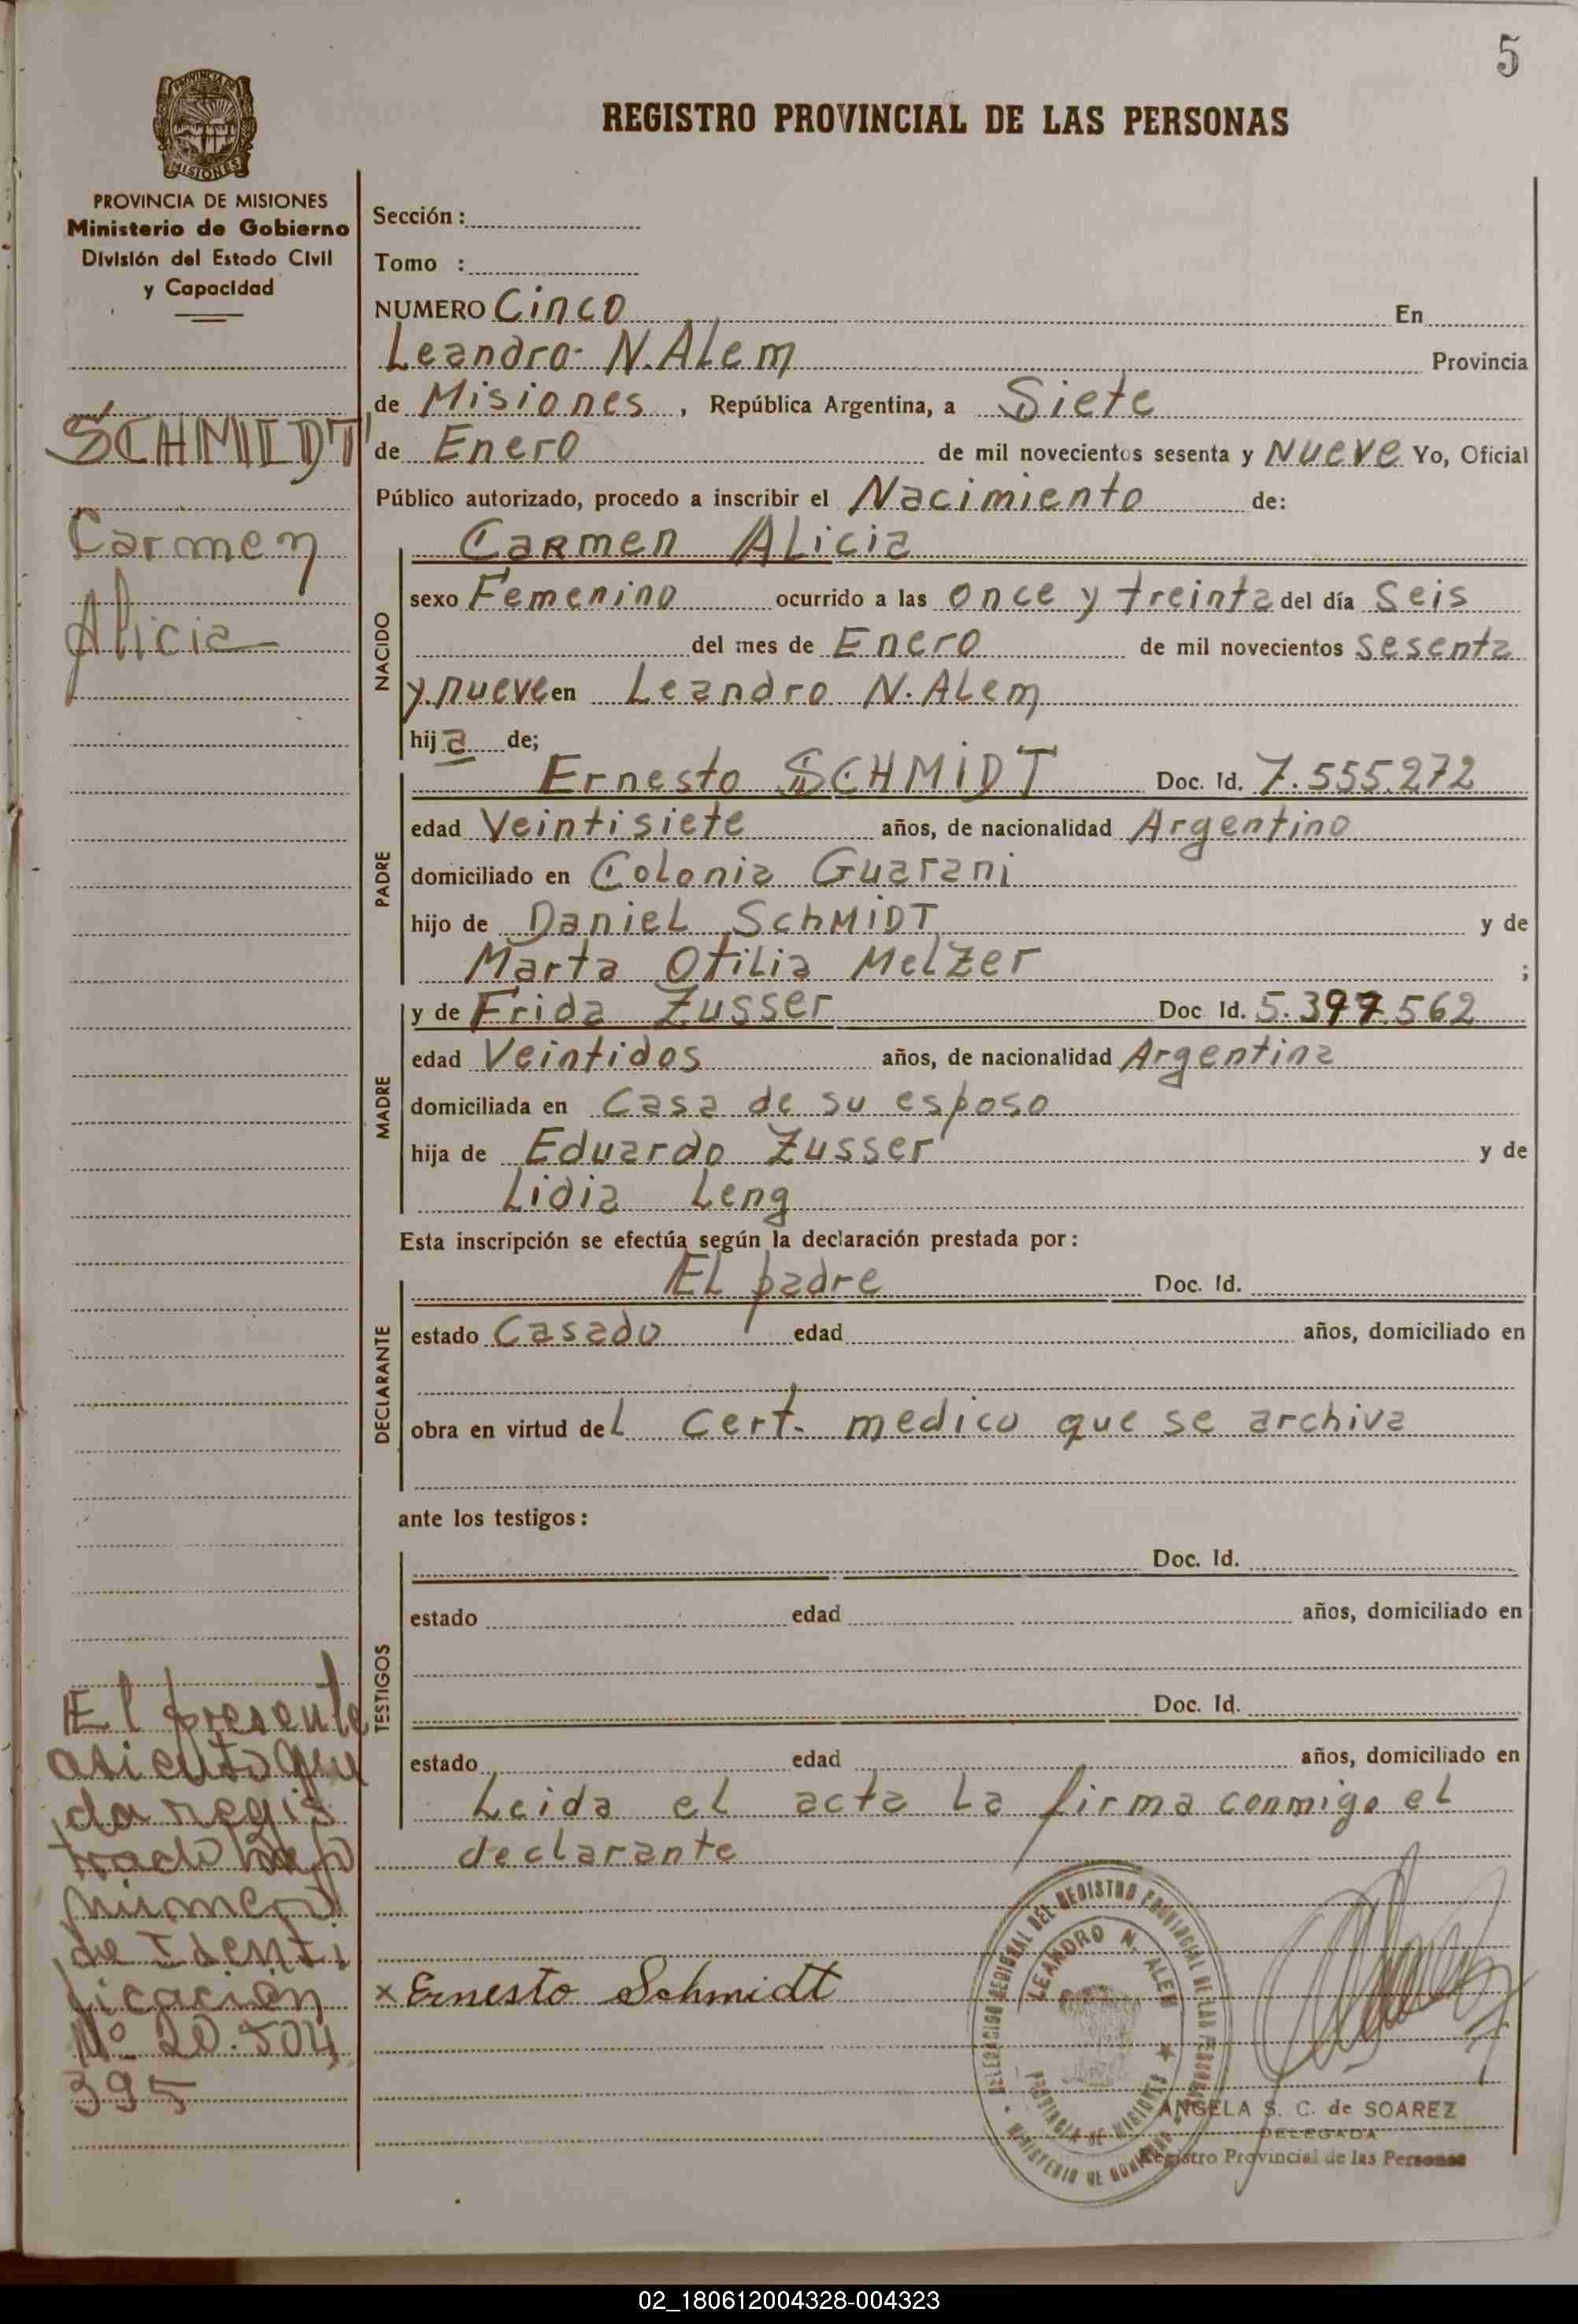 5
REGISTRO PROVINCIAL DE LAS PERSONAS
PROVINCIA DE MISIONES
MISIONES
PROVINCIA DE MISIONES
Ministerio de Gobierno
División del Estado Civil
y Capacidad
SCHMIDT
Carmen
Alicia
El presente
asiento que
da regis
trado bajo
número
de Identi
ficación
Nº 20.504
395
Sección :
Tomo :
NUMERO Cinco En
Leandro N. Alem Provincia
de Misiones , República Argentina, a Siete
de Enero de mil novecientos sesenta y Nueve Yo, Oficial
Público autorizado, procedo a inscribir el Nacimiento de:
Carmen Alicia
NACIDO
sexo Femenino ocurrido a las once y treinta del día Seis
del mes de Enero de mil novecientos sesenta
y nueve en Leandro N. Alem
hija de;
PADRE
Ernesto SCHMIDT Doc. Id. 7.555.272
edad Veintisiete años, de nacionalidad Argentino
domiciliado en Colonia Guarani
hijo de Daniel SchMIDT y de
Marta Otilia Melzer ;
MADRE
y de Frida Zusser Doc. Id. 5.397.562
edad Veintidos años, de nacionalidad Argentina
domiciliada en Casa de su esposo
hija de Eduardo Zusser y de
Lidia Leng
Esta inscripción se efectúa según la declaración prestada por :
DECLARANTE
El padre Doc. Id.
estado Casado edad años, domiciliado en
obra en virtud del cert. medico que se archiva
ante los testigos :
TESTIGOS
Doc. Id.
estado edad años, domiciliado en
Doc. Id.
estado edad años, domiciliado en
Leida el acta la firma conmigo el
declarante
x Ernesto Schmidt
DELEGACION REGIONAL DEL REGISTRO PROVINCIAL DE LAS PERSONAS
MINISTERIO DE GOBIERNO
LEANDRO N. ALEM
PROVINCIA DE MISIONES
ANGELA S. C. de SOAREZ
DELEGADA
Registro Provincial de las Personas
02_180612004328-004323